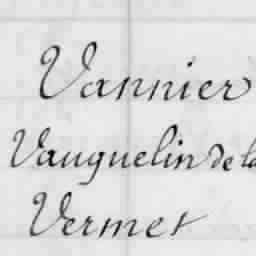 Vannier
Vauquelin de la
Vermet